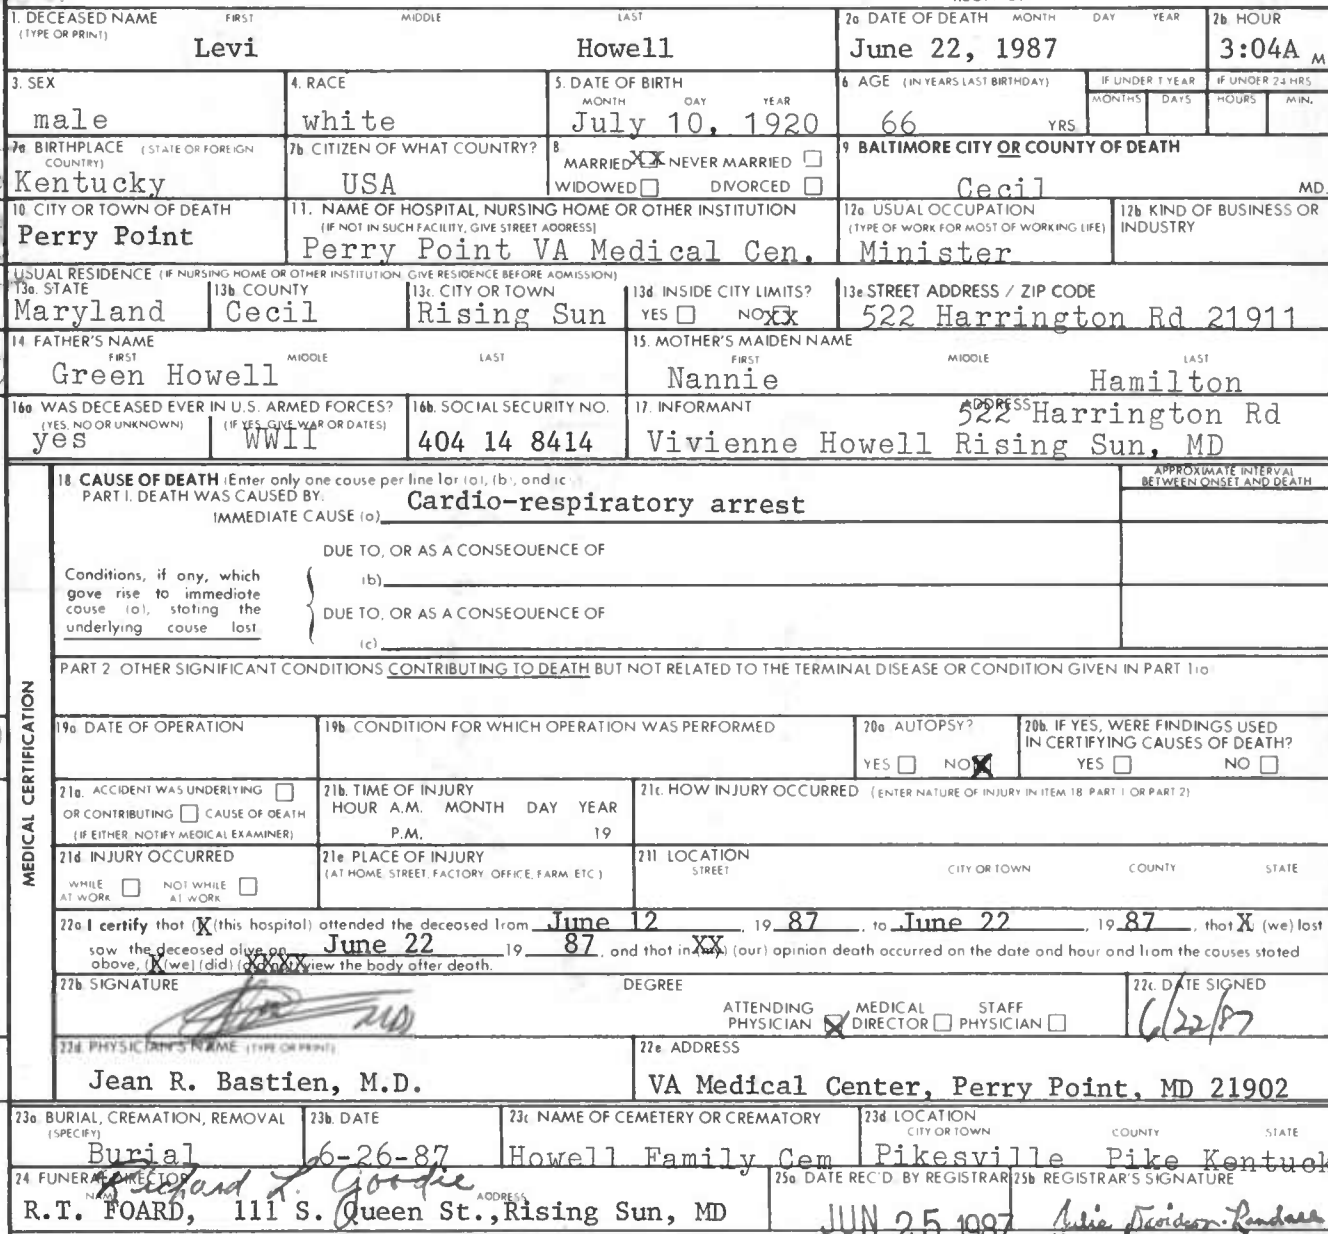 1. DECEASED NAME FIRST MIDDLE LAST
(TYPE OR PRINT)
Levi Howell
2a DATE OF DEATH MONTH DAY YEAR
June 22, 1987
2b HOUR
3:04A M
3. SEX
male
4. RACE
white
5. DATE OF BIRTH
MONTH DAY YEAR
July 10, 1920
6 AGE (IN YEARS LAST BIRTHDAY)
66 YRS
IF UNDER 1 YEAR
MONTHS DAYS
IF UNDER 24 HRS
HOURS MIN.
7a BIRTHPLACE (STATE OR FOREIGN
COUNTRY)
Kentucky
7b CITIZEN OF WHAT COUNTRY?
USA
8
MARRIED XX NEVER MARRIED
WIDOWED DIVORCED
9 BALTIMORE CITY OR COUNTY OF DEATH
Cecil MD.
10 CITY OR TOWN OF DEATH
Perry Point
11. NAME OF HOSPITAL, NURSING HOME OR OTHER INSTITUTION
(IF NOT IN SUCH FACILITY, GIVE STREET ADDRESS)
Perry Point VA Medical Cen.
12a USUAL OCCUPATION
(TYPE OF WORK FOR MOST OF WORKING LIFE)
Minister
12b KIND OF BUSINESS OR
INDUSTRY
USUAL RESIDENCE (IF NURSING HOME OR OTHER INSTITUTION, GIVE RESIDENCE BEFORE ADMISSION)
13a. STATE
Maryland
13b COUNTY
Cecil
13c. CITY OR TOWN
Rising Sun
13d INSIDE CITY LIMITS?
YES NO XX
13e STREET ADDRESS / ZIP CODE
522 Harrington Rd 21911
14 FATHER'S NAME
FIRST MIDDLE LAST
Green Howell
15. MOTHER'S MAIDEN NAME
FIRST MIDDLE LAST
Nannie Hamilton
16a WAS DECEASED EVER IN U.S. ARMED FORCES?
(YES, NO OR UNKNOWN) (IF YES, GIVE WAR OR DATES)
yes WWII
16b. SOCIAL SECURITY NO.
404 14 8414
17. INFORMANT ADDRESS
522 Harrington Rd
Vivienne Howell Rising Sun, MD
MEDICAL CERTIFICATION
18 CAUSE OF DEATH (Enter only one cause per line for (a), (b), and (c
PART I. DEATH WAS CAUSED BY:
IMMEDIATE CAUSE (a) Cardio-respiratory arrest
APPROXIMATE INTERVAL
BETWEEN ONSET AND DEATH
DUE TO, OR AS A CONSEQUENCE OF
(b)
Conditions, if any, which
gave rise to immediate
cause (a), stating the
underlying cause last
DUE TO, OR AS A CONSEQUENCE OF
(c)
PART 2 OTHER SIGNIFICANT CONDITIONS CONTRIBUTING TO DEATH BUT NOT RELATED TO THE TERMINAL DISEASE OR CONDITION GIVEN IN PART 1(a)
19a DATE OF OPERATION
19b CONDITION FOR WHICH OPERATION WAS PERFORMED
20a AUTOPSY?
YES NO X
20b. IF YES, WERE FINDINGS USED
IN CERTIFYING CAUSES OF DEATH?
YES NO
21a. ACCIDENT WAS UNDERLYING
OR CONTRIBUTING CAUSE OF DEATH
(IF EITHER, NOTIFY MEDICAL EXAMINER)
21b. TIME OF INJURY
HOUR A.M. MONTH DAY YEAR
P.M. 19
21c. HOW INJURY OCCURRED (ENTER NATURE OF INJURY IN ITEM 18 PART 1 OR PART 2)
21d INJURY OCCURRED
WHILE AT WORK NOT WHILE AT WORK
21e PLACE OF INJURY
(AT HOME, STREET, FACTORY, OFFICE, FARM, ETC.)
21f LOCATION
STREET CITY OR TOWN COUNTY STATE
22a I certify that (X (this hospital) attended the deceased from June 12 , 19 87 , to June 22 , 19 87 , that X (we) last
saw the deceased alive on June 22 19 87 , and that in XX (our) opinion death occurred on the date and hour and from the causes stated
above, (X (we) (did) (XXXX view the body after death.
22b SIGNATURE DEGREE
MD
ATTENDING PHYSICIAN X MEDICAL DIRECTOR STAFF PHYSICIAN
22c. DATE SIGNED
6/22/87
22d. PHYSICIAN'S NAME (TYPE OR PRINT)
Jean R. Bastien, M.D.
22e ADDRESS
VA Medical Center, Perry Point, MD 21902
23a BURIAL, CREMATION, REMOVAL
(SPECIFY)
Burial
23b. DATE
6-26-87
23c NAME OF CEMETERY OR CREMATORY
Howell Family Cem
23d LOCATION
CITY OR TOWN COUNTY STATE
Pikesville Pike Kentuck
24 FUNERAL DIRECTOR
Richard L. Goodie
NAME ADDRESS
R.T. FOARD, 111 S. Queen St., Rising Sun, MD
25a DATE REC'D BY REGISTRAR
JUN 25 1987
25b REGISTRAR'S SIGNATURE
Julia Davidson-Randall